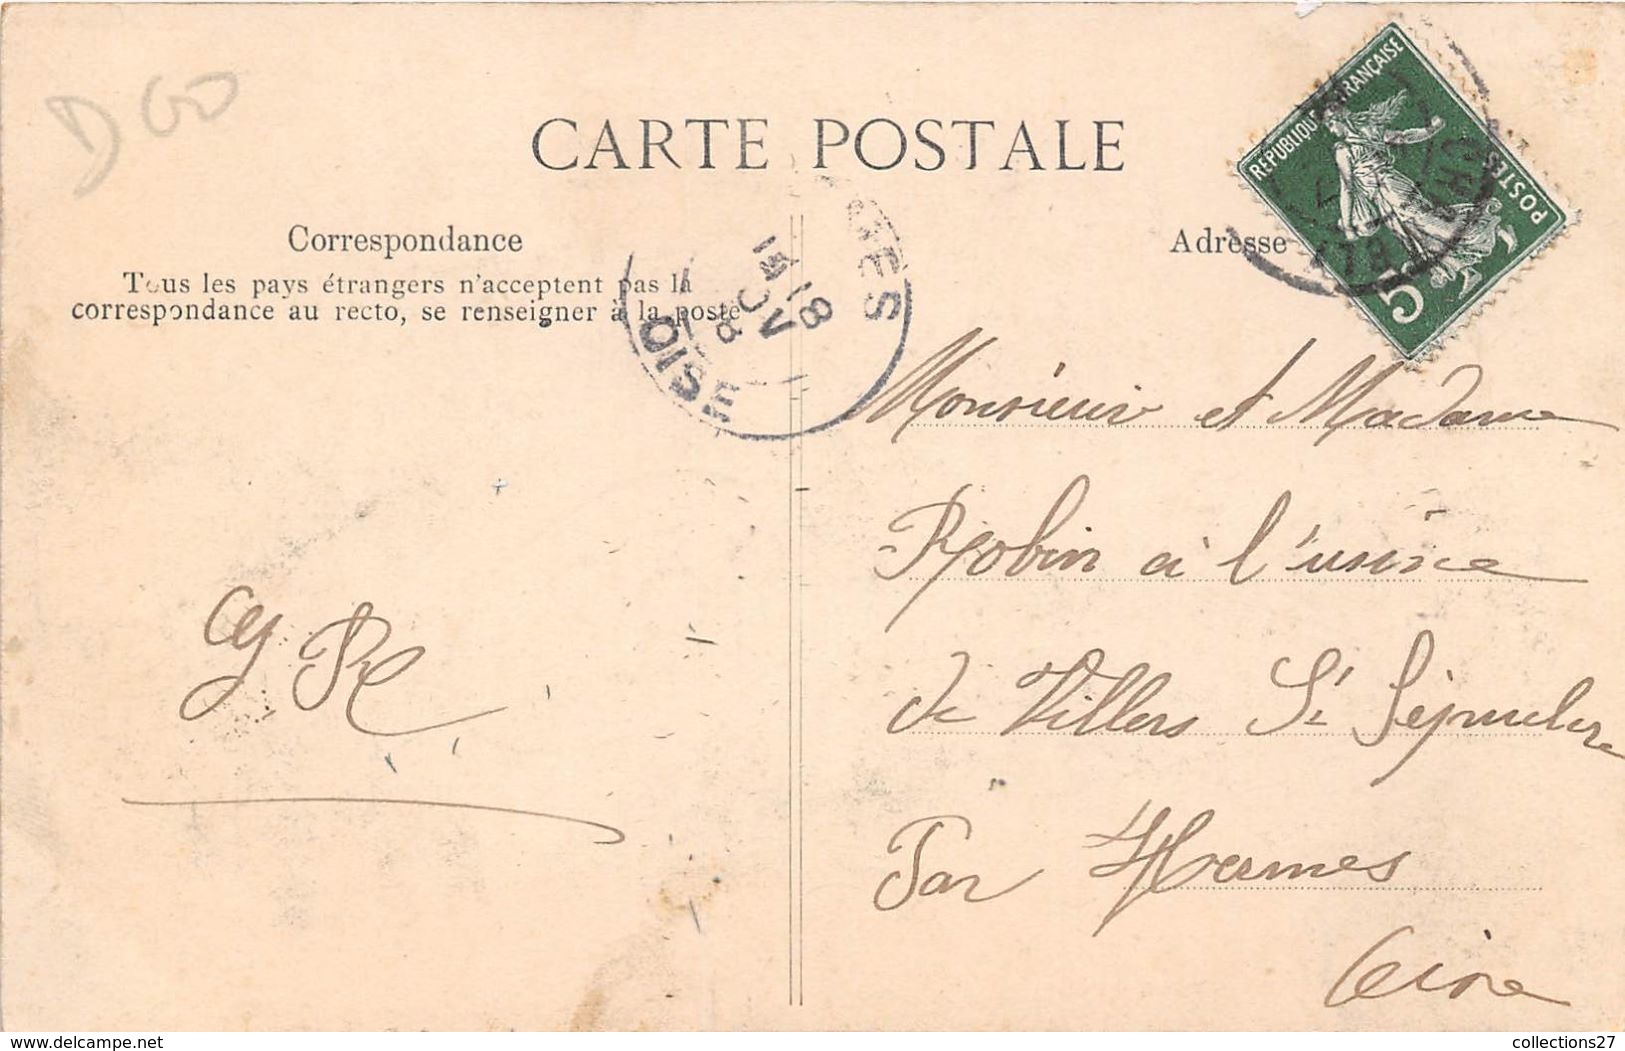 D 60
CARTE POSTALE
Correspondance
Tous les pays étrangers n'acceptent pas la
correspondance au recto, se renseigner à la poste
Adresse
REPUBLIQUE FRANÇAISE
POSTES
5c
OISE
Monsieur et Madame
Robin à l'usine
de Villers St Sépulcre
Par Hermes
Oise
collections27